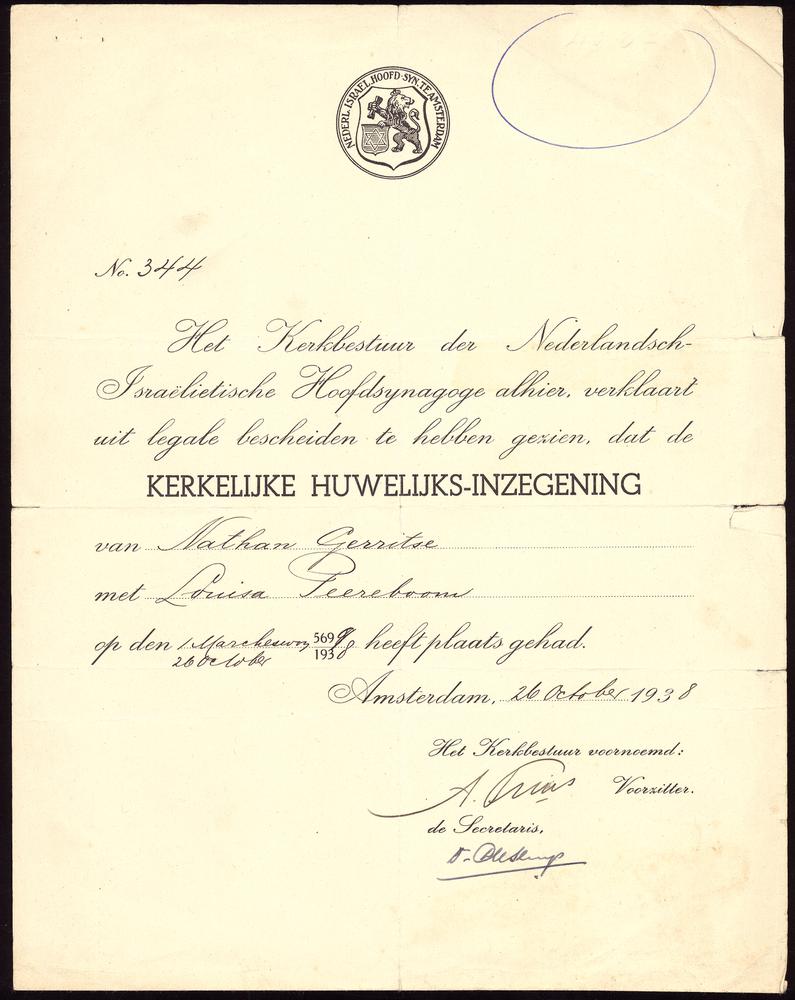 NEDERL. ISRAEL. HOOFD-SYN. TE AMSTERDAM
No. 344
Het Kerkbestuur der Nederlandsch-
Israëlietische Hoofdsynagoge alhier, verklaart
uit legale bescheiden te hebben gezien, dat de
KERKELIJKE HUWELIJKS-INZEGENING
van Nathan Gerritse
met Louisa Peereboom
op den 1 Marcheswon 5699 heeft plaats gehad.
26 October 1938
Amsterdam, 26 October 1938
Het Kerkbestuur voornoemd:
A. Voorzitter.
de Secretaris,